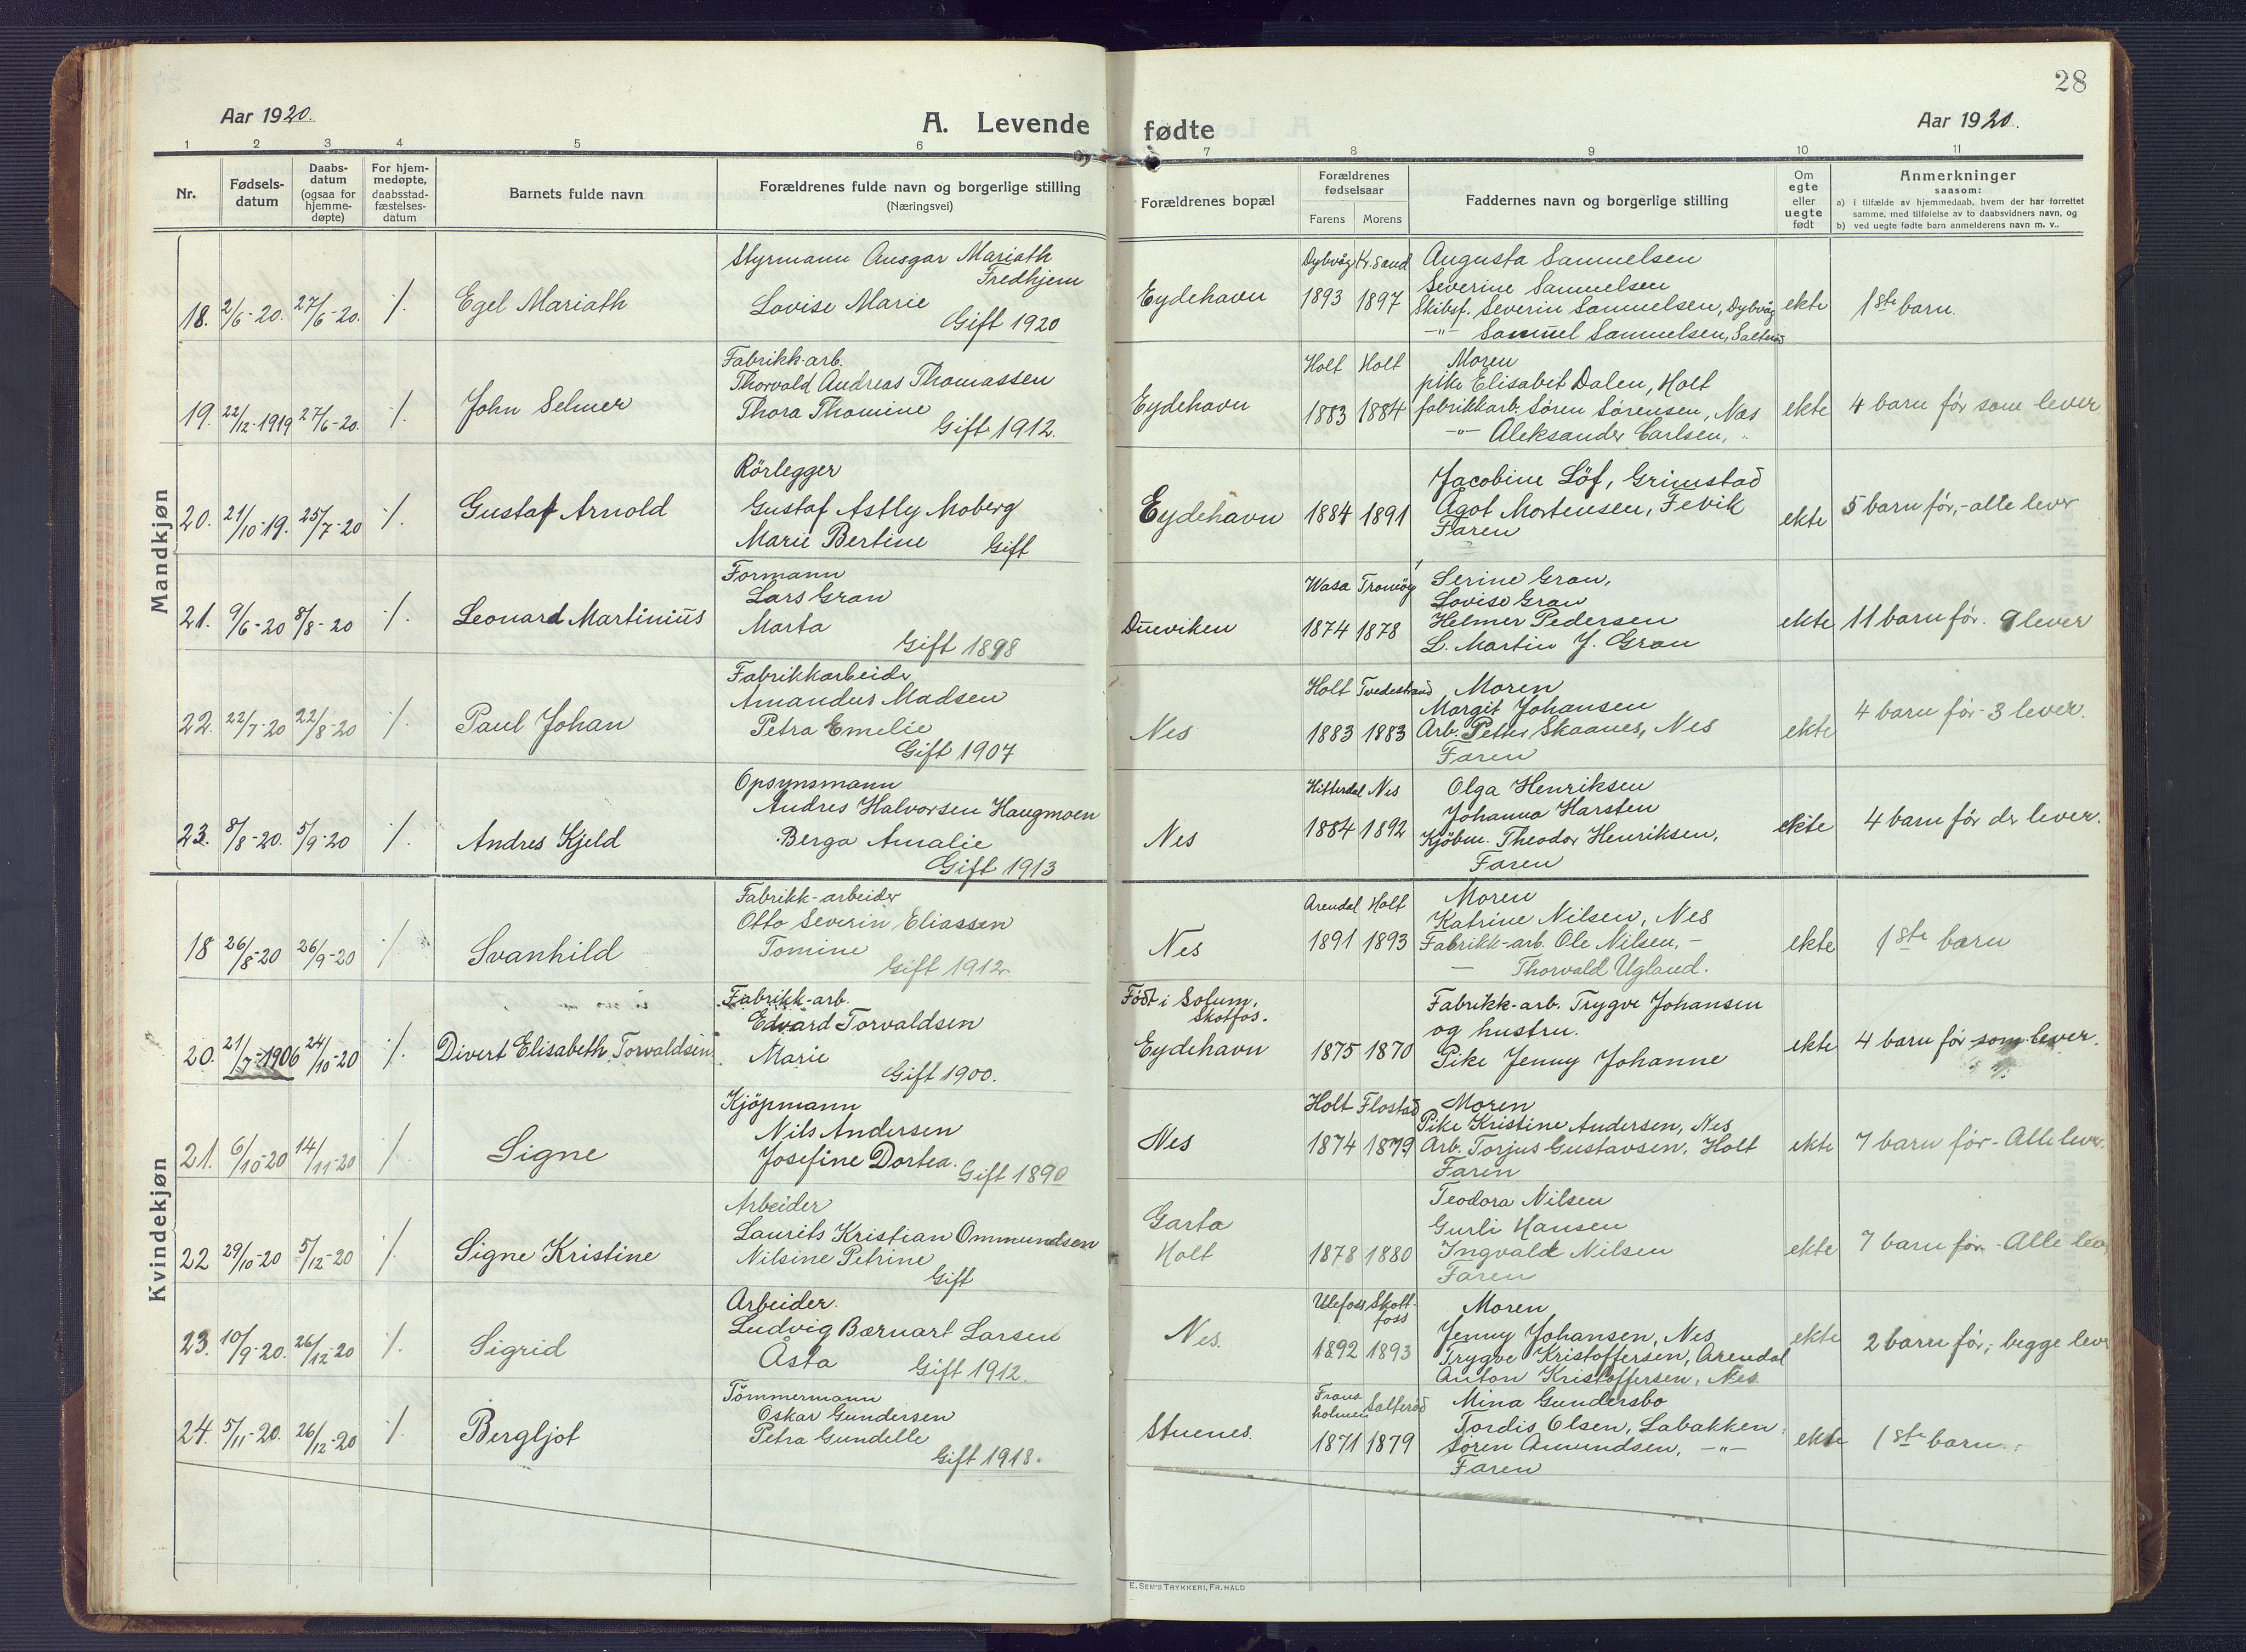 28
Aar 1920.
A. Levende
fødte
Aar 1920.
1 2 3 4 5 6 7 8 9 10 11
Nr.
Fødsels-
datum
Daabs-
datum
(ogsaa for
hjemme-
døpte)
For hjem-
medøpte,
daabsstad-
fæstelses-
datum
Barnets fulde navn
Forældrenes fulde navn og borgerlige stilling
(Næringsvei)
Forældrenes bopæl
Forældrenes
fødselsaar
Farens Morens
Faddernes navn og borgerlige stilling
Om
egte
eller
uegte
født
Anmerkninger
saasom:
a) i tilfælde av hjemmedaab, hvem der har forrettet
samme, med tilføielse av to daabsvidners navn, og
b) ved uegte fødte barn anmelderens navn m. v..
Mandkjøn
18. 2/6-20. 27/6-20. ./. Egel Mariath
Styrmann Ansgar Mariath
Fredhjem
Lovise Marie
Gift 1920
Eydehavn
Dybvåg Kr.sand
1893 1897
Augusta Samuelsen
Severine Samuelsen
Skibsf. Severin Samuelsen, Dybvåg
-"- Samuel Samuelsen, Salterød
ekte
1ste barn.
19. 22/12-1919 27/6-20. ./. John Selmer
Fabrikk-arb.
Thorvald Andreas Thomassen
Thora Thomine
Gift 1912.
Eydehavn
Holt Holt
1883 1884
Moren
pike Elisabet Dalen, Holt
fabrikkarb. Søren Sørensen, Nes
-"- Aleksander Carlsen, "
ekte
4 barn før som lever
20. 21/10-19. 25/7-20 ./. Gustaf Arnold
Rörlegger
Gustaf Astly Moberg
Marie Bertine Gift
Eydehavn
1884 1891
Jacobine Löf, Grimstad
Ågot Mortensen, Fevik
Faren
ekte
5 barn før,- alle lever
21. 9/6-20 8/8-20 ./. Leonard Martinius
Formann
Lars Gran
Marta
Gift 1898
Dueviken
Wasa Tromöy
1874 1878
Serine Gran,
Lovise Gran
Helmer Pedersen
L. Martin J. Gran
ekte
11 barn før. 9 lever
22. 22/7-20 22/8-20 ./. Paul Johan
Fabrikkarbeider
Amandus Madsen
Petra Emelie
Gift 1907
Nes
Holt Tvedestrand
1883 1883
Moren
Margit Johansen
Arb. Petter Skaanes, Nes
Faren
ekte
4 barn før - 3 lever.
23. 8/8-20. 5/9-20 ./. Andres Kjeld
Opsynsmann
Andres Halvorsen Haugmoen
Berga Amalie
Gift 1913
Nes
Hitterdal Nes
1884 1892
Olga Henriksen
Johanna Harsten
Kjöbm. Theodor Henriksen,
Faren
ekte
4 barn før der lever.
Kvindekjøn
18 26/8-20 26/9-20 ./. Svanhild
Fabrikk-arbeider
Otto Severin Eliassen
Tomine
Gift 1912.
Nes
Arendal Holt
1891 1893
Moren
Katrine Nilsen, Nes
Fabrikk-arb. Ole Nilsen, -
- Thorvald Ugland.
ekte
1ste barn
20. 21/7-1906 24/10-20 ./. Divert Elisabeth Torvaldsen
Fabrikk-arb.
Edvard Torvaldsen
Marie
Gift 1900.
Født i Solum,
Skotfos.
Eydehavn
1875 1870
Fabrikk-arb. Trygve Johansen
og hustru.
Pike Jenny Johanne
ekte
4 barn før som lever.
21. 6/10-20 14/11-20 ./. Signe
Kjöpmann
Nils Andersen
Josefine Dortea.
Gift 1890
Nes
Holt Flostad
1874 1879
Moren
Pike Kristine Andersen, Nes
Arb. Torjus Gustavsen, Holt
Faren
ekte
7 barn før - Alle lever.
22 29/10-20 5/12-20 ./. Signe Kristine
Arbeider
Laurits Kristian Ommundsen
Nilsine Petrine
Gift
Garta
Holt
1878 1880
Teodora Nilsen
Gurli Hansen
Ingvald Nilsen
Faren
ekte
7 barn før - Alle lever
23. 10/9-20. 26/12-20 ./. Sigrid
Arbeider.
Ludvig Bernart Larsen
Åsta Gift 1912.
Nes.
Ulefoss Skott-
foss
1892 1893
Moren
Jenny Johansen, Nes
Trygve Kristoffersen, Arendal
Anton Kristoffersen, Nes
ekte
2 barn før,- begge lever
24. 5/11-20. 26/12-20 ./. Bergljot
Tömmermann
Oskar Gundersen
Petra Gundelle
Gift 1918.
Stuenes.
Frans
holmen Salteröd
1871 1879
Mina Gundersbo
Tordis Olsen, Labakken.
Sören Amundsen, -"-
Faren
ekte
1ste barn.
E. SEM'S TRYKKERI, FR.HALD